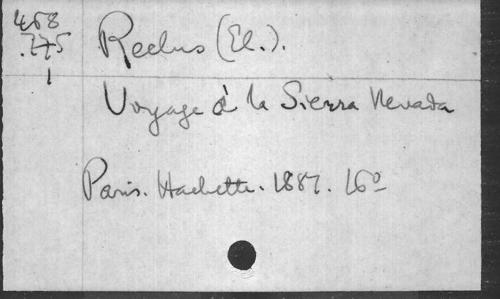 468
.775
1
Reclus (El.).
Voyage à la Sierra Nevada
Paris. Hachette. 1887. 16°